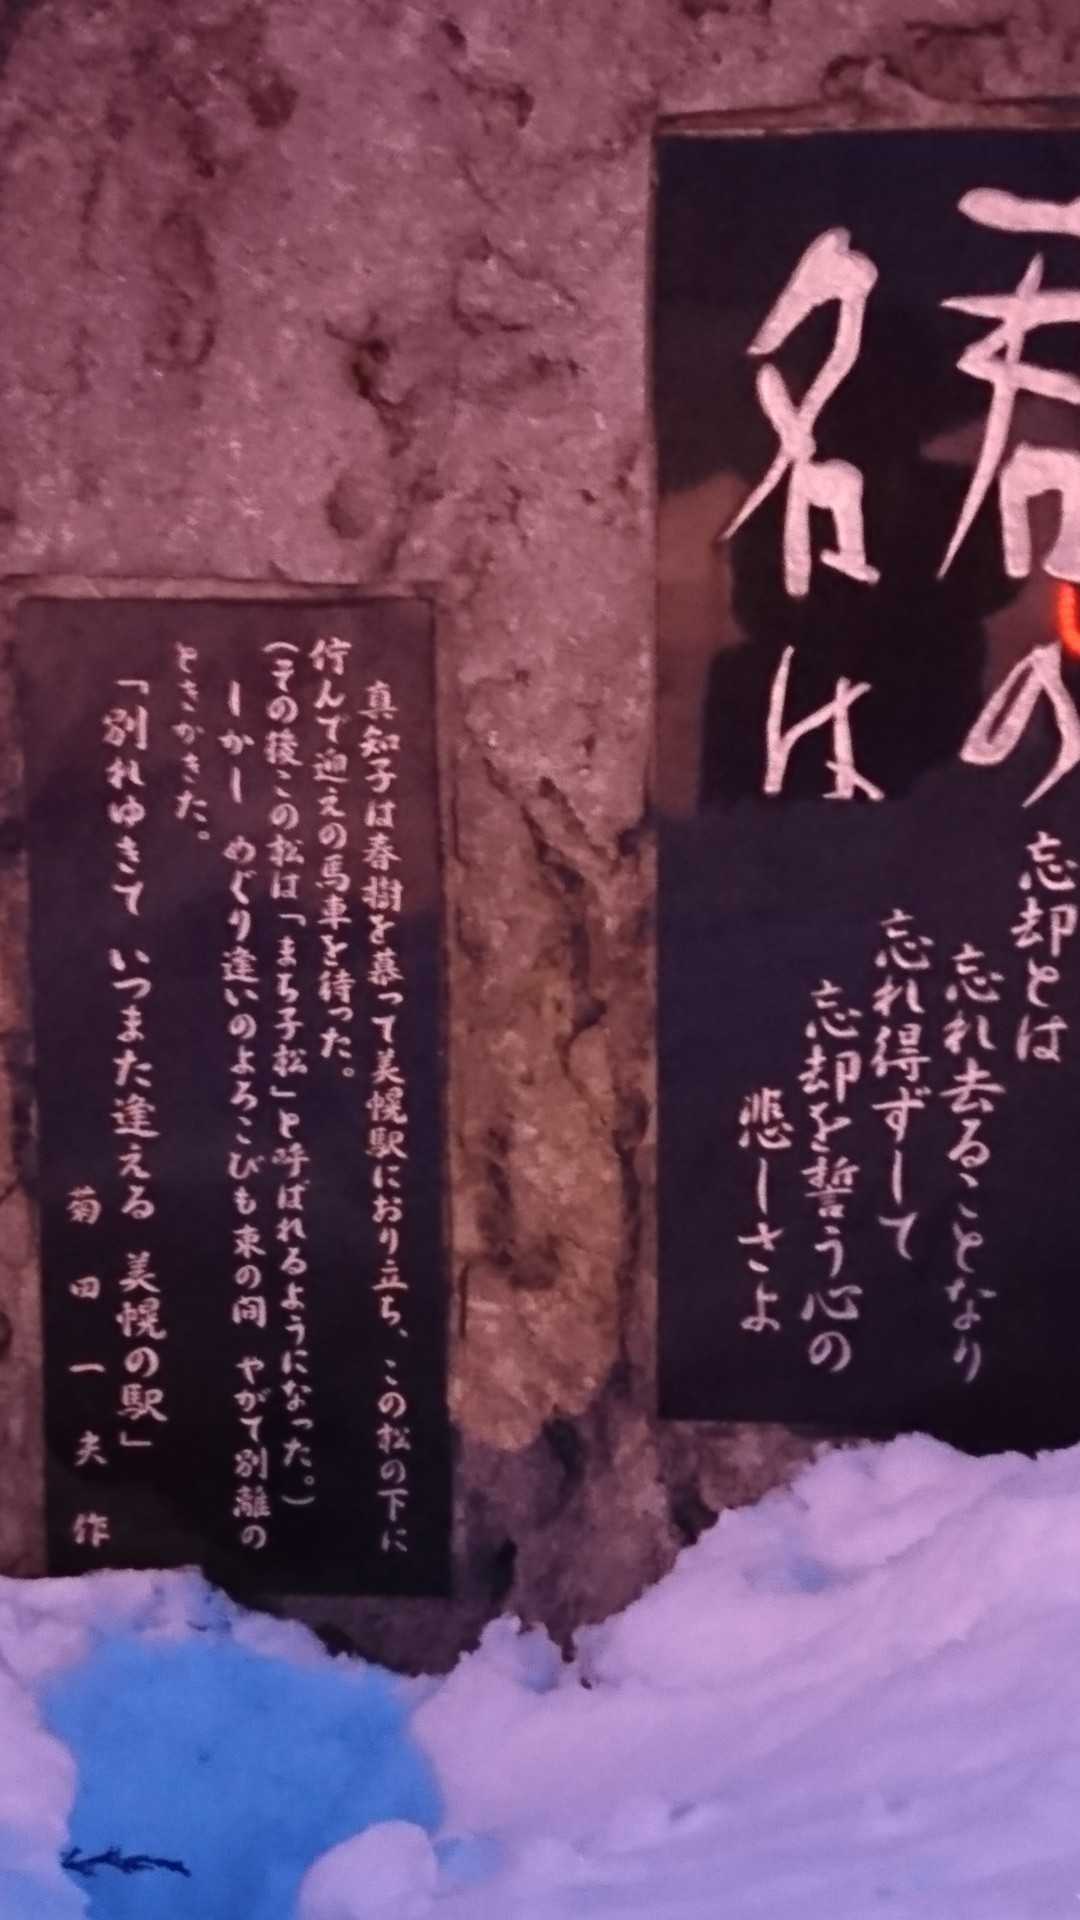 君の
名は
忘却とは
忘れ去ることなり
忘れ得ずして
忘却を誓う心の
悲しさよ
真知子は春樹を慕って美幌駅におり立ち、この松の下に
佇んで迎えの馬車を待った。
(その後この松は「まち子松」と呼ばれるようになった。)
しかし めぐり逢いのよろこびも束の間 やがて別離の
ときがきた。
「別れゆきて いつまた逢える 美幌の駅」
菊田一夫作